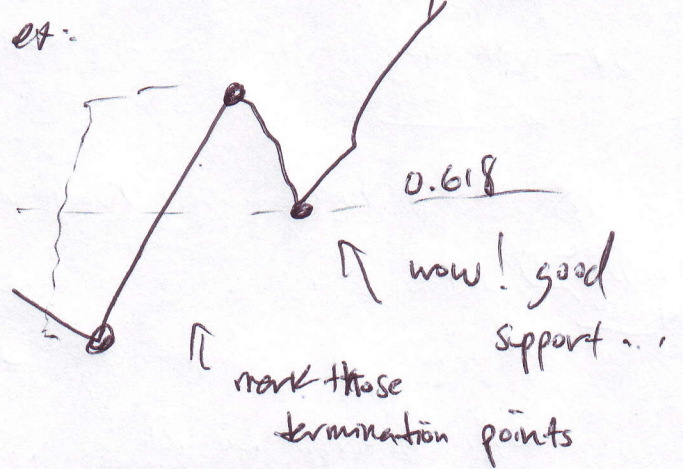 ex:
0.618
wow! good
support...
mark those
termination points